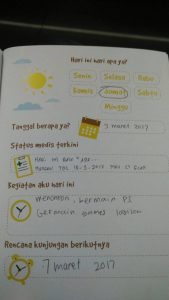 Hari ini hari apa ya?
Senin Selasa Rabu
Kamis Jumat Sabtu
Minggu
Tanggal berapa ya?
3 maret 2017
Status medis terkini
Hari ini
Kegiatan aku hari ini
menonton, bermain PS
bermain games
Rencana kunjungan berikutnya
7 maret 2017